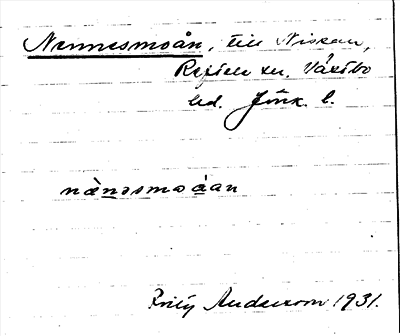 Nennesmoån, till Nissan,
Reftele sn, Västbo
hd. Jönk. l.
nänəsmoåan
Andersson 1931.